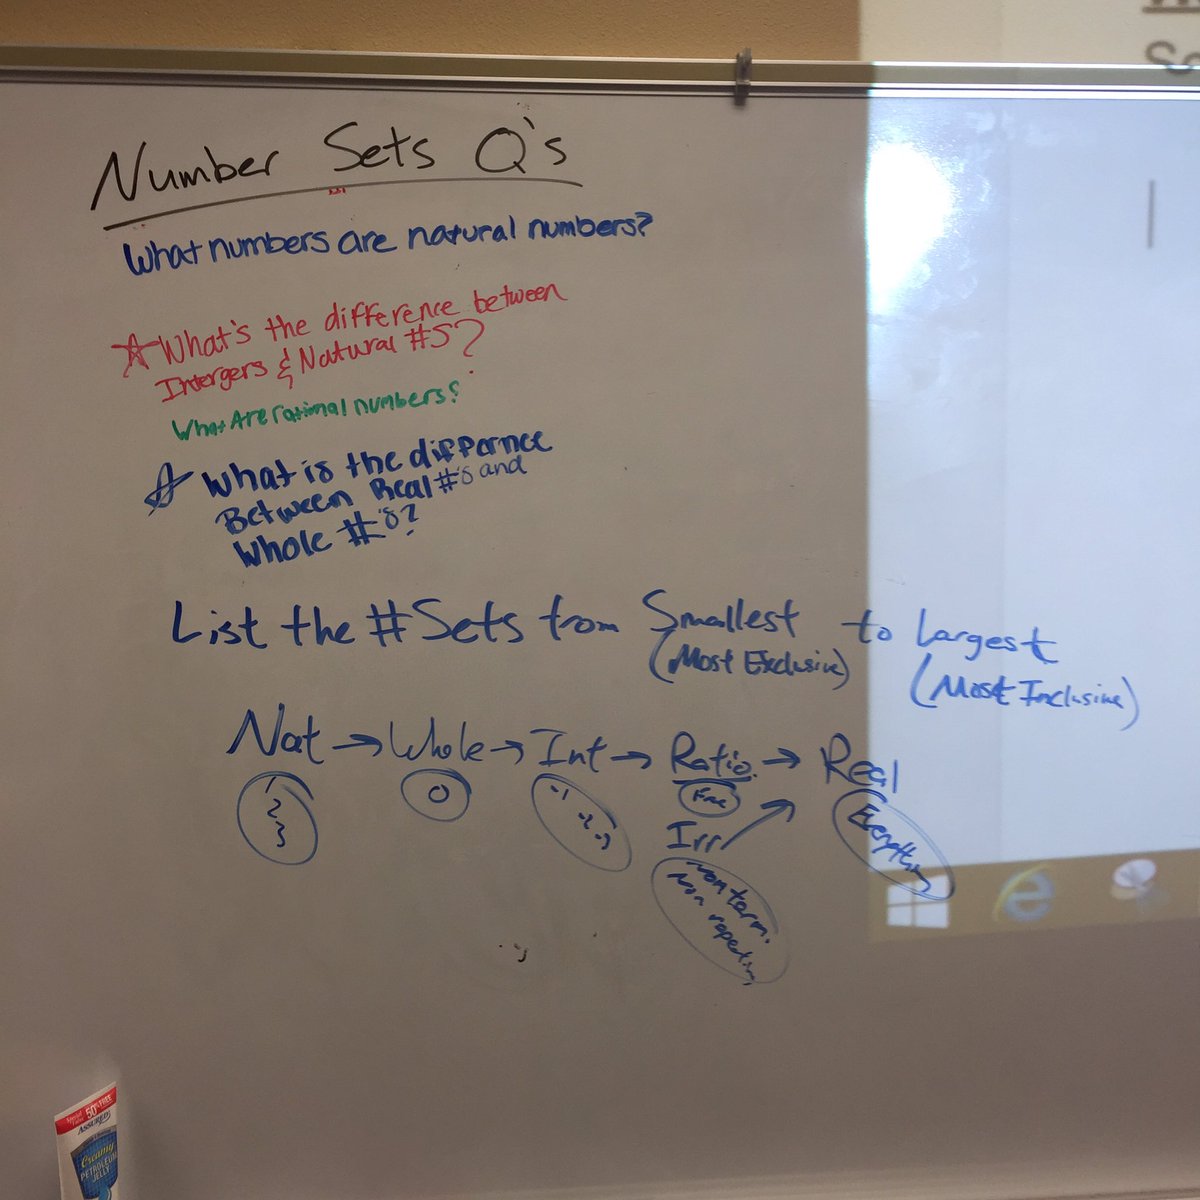 Number Sets Q's
What numbers are natural numbers?
What's the difference between
Intergers & Natural #S?
What Are rational numbers?
What is the differnce
Between Real #'s and
Whole #'s?
List the # Sets from Smallest to Largest
(Most Exclusive) (Most Inclusive)
Nat → Whole → Int → Ratio. → Real
1
2
3
0
-1 -2 -3
Irr
Everything
non term.
non repeating
Special Value 50% FREE
ASSURED
Creamy
PETROLEUM
JELLY